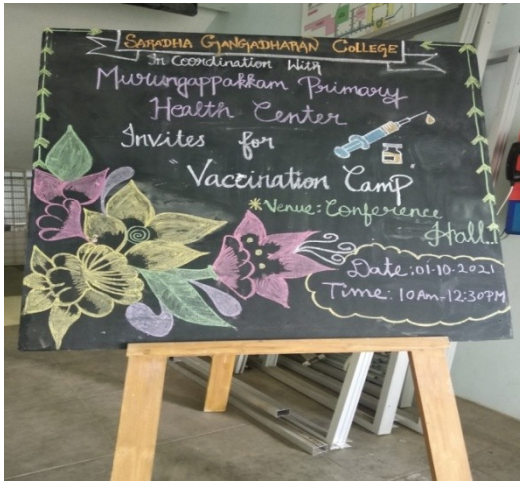 SARADHA GANGADHARAN COLLEGE
In Coordination With
Murungappakkam Primary
Health Center
Invites for
Vaccination Camp
*Venue: Conference
Hall..!
Date: 01-10-2021
Time: 10Am-12:30PM